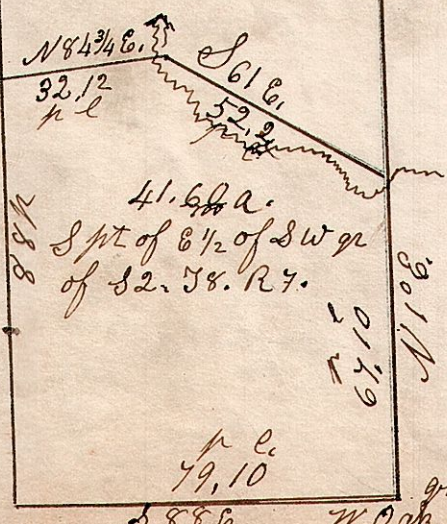 N 84¾ E.
32.12
p l
S 61 E.
52.2
41.60 a.
S pt of E ½ of S W qr
of S 2. T 8. R 7.
N 88
N 10 E
p l.
79,10
S 88 E
W Oak